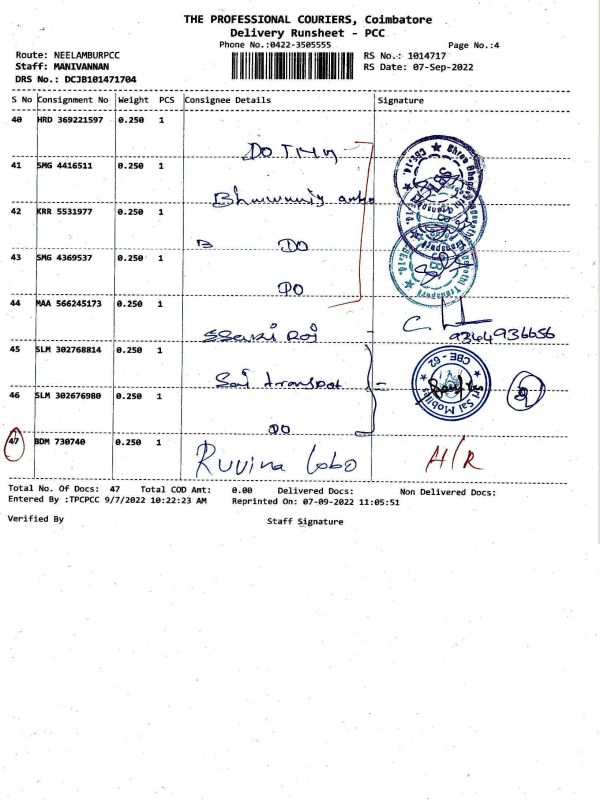 THE PROFESSIONAL COURIERS, Coimbatore
Delivery Runsheet - PCC
Phone No.:0422-3505555
Page No.:4
Route: NEELAMBURPCC
RS No.: 1014717
Staff: MANIVANNAN
RS Date: 07-Sep-2022
DRS No.: DCJB101471704
S No Consignment No Weight PCS Consignee Details Signature
40 HRD 369221597 0.250 1
41 SMG 4416511 0.250 1
42 KRR 5531977 0.250 1
DO
43 SMG 4369537 0.250 1
DO
44 MAA 566245173 0.250 1
9364936656
45 SLM 302768814 0.250 1
Sai transpot
CBE - 62
Sri Sai Mobiles
46 SLM 302676980 0.250 1
DO
47 BDM 730740 0.250 1
Ruvina Lobo
Total No. Of Docs: 47 Total COD Amt: 0.00 Delivered Docs: Non Delivered Docs:
Entered By :TPCPCC 9/7/2022 10:22:23 AM Reprinted On: 07-09-2022 11:05:51
Verified By
Staff Signature